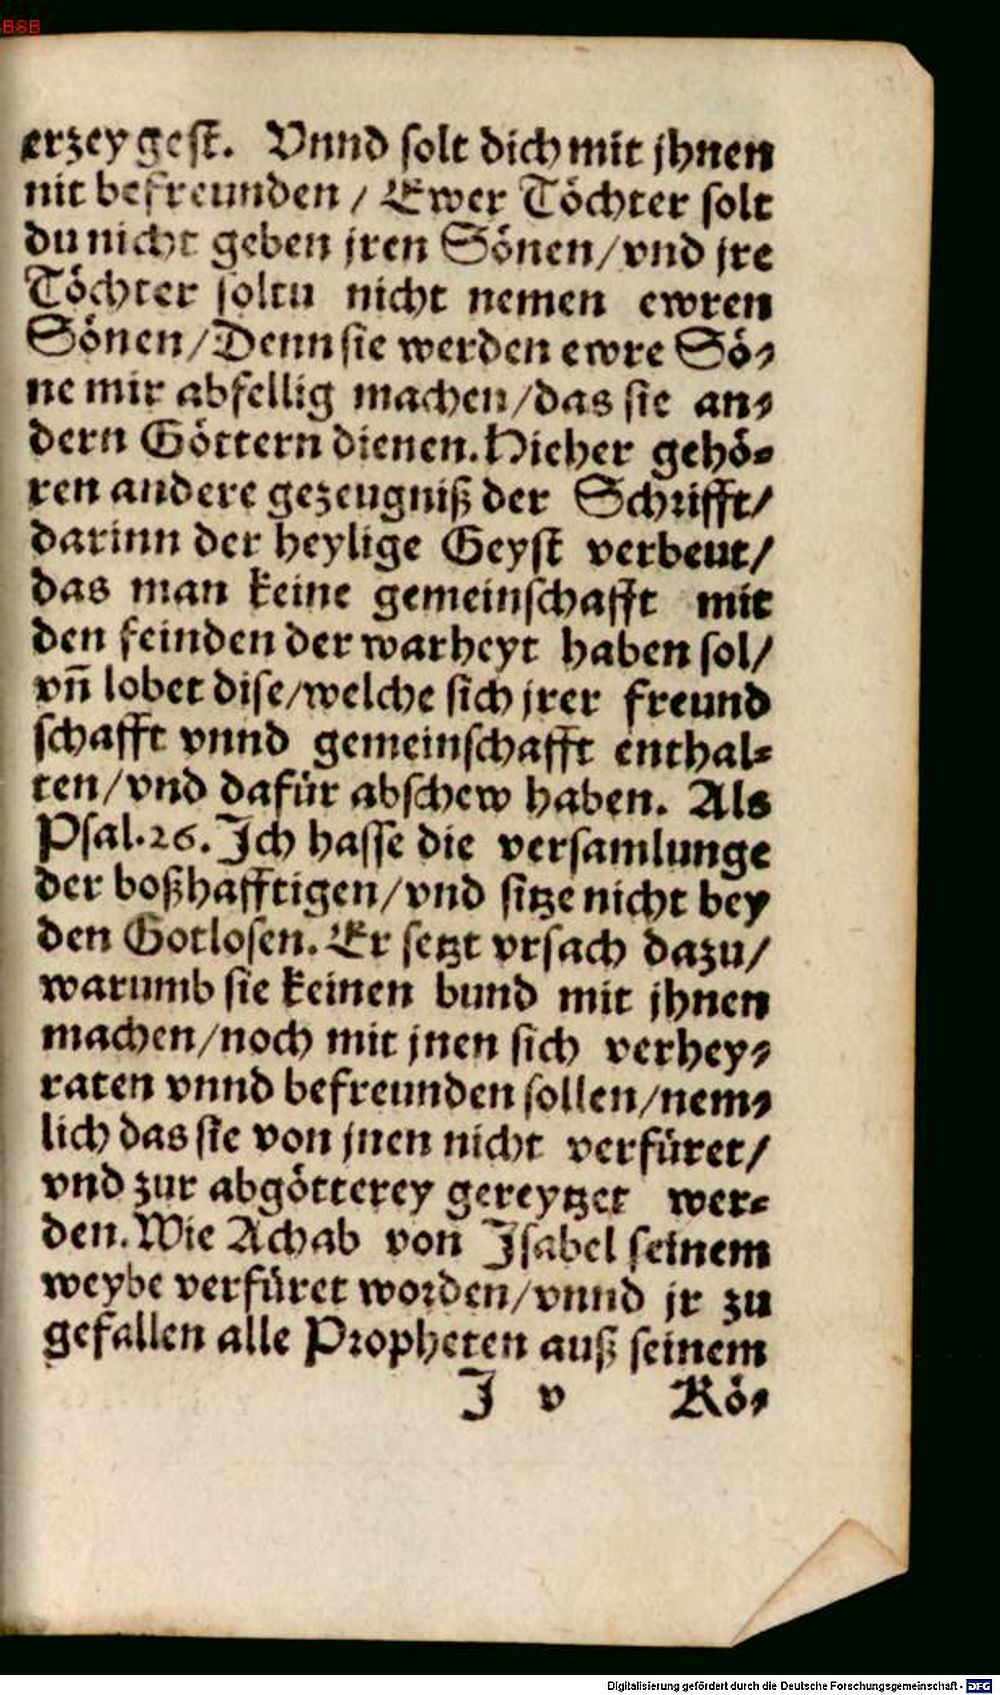 BSB
erzeygest. Vnnd solt dich mit jhnen
nit befreunden / Ewer Töchter solt
du nicht geben jren Sönen/vnd jre
Töchter soltu nicht nemen ewren
Sönen/Denn sie werden ewre Sö⸗
ne mir abfellig machen/das sie an⸗
dern Göttern dienen. Hieher gehö⸗
ren andere gezeugniß der Schrifft/
darinn der heylige Geyst verbeut/
das man keine gemeinschafft mit
den feinden der warheyt haben sol/
vñ lobet dise/welche sich jrer freund
schafft vnnd gemeinschafft enthal⸗
ten/vnd dafür abschew haben. Als
Psal.26. Ich hasse die versamlunge
der boßhafftigen/vnd sitze nicht bey
den Gotlosen. Er setzt vrsach dazu/
warumb sie keinen bund mit jhnen
machen/noch mit jnen sich verhey⸗
raten vnnd befreunden sollen/nem⸗
lich das sie von jnen nicht verfüret/
vnd zur abgötterey gereytzet wer⸗
den. Wie Achab von Isabel seinem
weybe verfüret worden/vnnd jr zu
gefallen alle Propheten auß seinem
I v Kö⸗
Digitalisierung gefördert durch die Deutsche Forschungsgemeinschaft - DFG